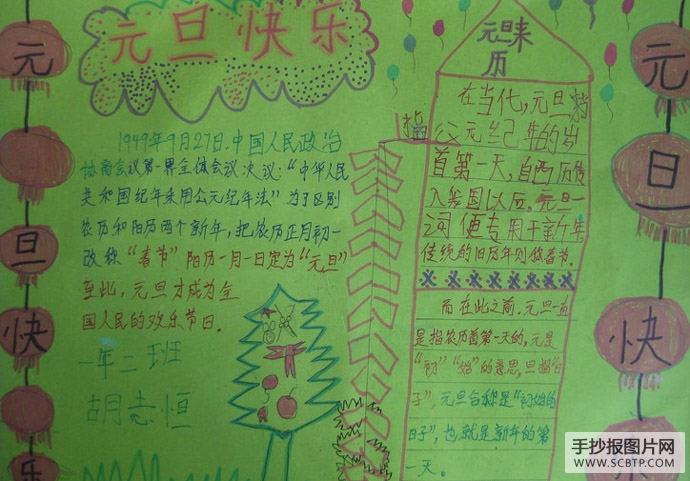 元旦快乐
元旦快乐
1949年9月27日.中国人民政治
协商会议第一界全体会议决议:“中华人民
共和国纪年采用公元纪年法”为了区别
农历和阳历两个新年,把农历正月初一
改称“春节”阳历一月一日定为“元旦”
至此,元旦才成为全
国人民的欢乐节日.
一年二班
胡志恒
元旦来
历
在当代,元旦指
公元纪年的岁
首第一天,自西历传
入我国以后,元旦一
词便专用于新年
传统的旧历年则称春节.
而在此之前,元旦一直
是指农历首第一天的,元是
“初”“始”的意思,旦指“日
子”,元旦合称是“初始的
日子”,也就是新年的第
一天.
元旦快乐
手抄报图片网
WWW.SCBTP.COM